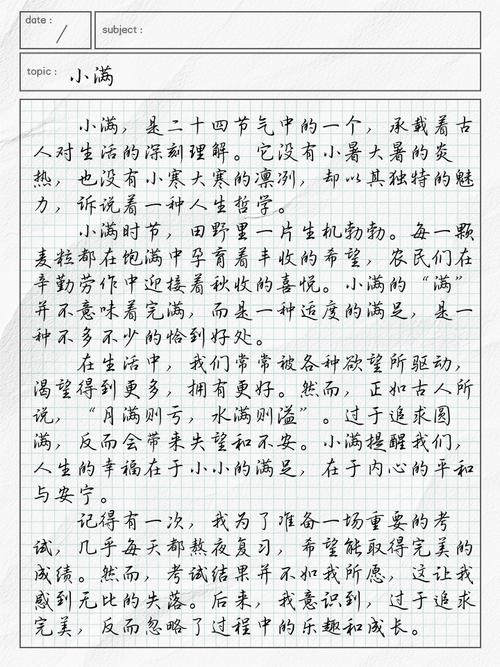 date :
/
subject :
topic : 小满
小满，是二十四节气中的一个，承载着古
人对生活的深刻理解。它没有小暑大暑的炎
热，也没有小寒大寒的凛冽，却以其独特的魅
力，诉说着一种人生哲学。
小满时节，田野里一片生机勃勃。每一颗
麦粒都在饱满中孕育着丰收的希望，农民们在
辛勤劳作中迎接着秋收的喜悦。小满的“满”
并不意味着完满，而是一种适度的满足，是一
种不多不少的恰到好处。
在生活中，我们常常被各种欲望所驱动，
渴望得到更多，拥有更好。然而，正如古人所
说，“月满则亏，水满则溢”。过于追求圆
满，反而会带来失望和不安。小满提醒我们，
人生的幸福在于小小的满足，在于内心的平和
与安宁。
记得有一次，我为了准备一场重要的考
试，几乎每天都熬夜复习，希望能取得完美的
成绩。然而，考试结果并不如我所愿，这让我
感到无比的失落。后来，我意识到，过于追求
完美，反而忽略了过程中的乐趣和成长。